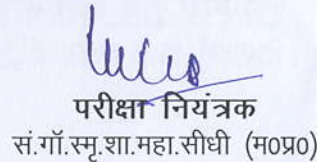 परीक्षा नियंत्रक
सं.गॉ.स्मृ.शा.महा.सीधी (म०प्र०)